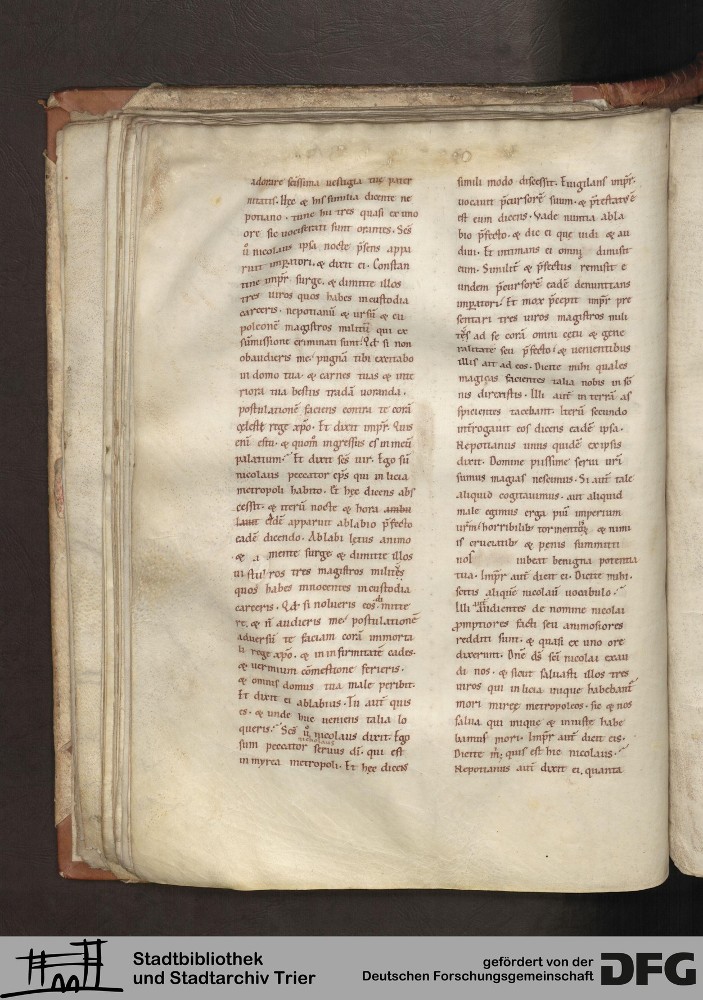 adorare scissima uestigia tue pater
nitatis. Hęc & his similia dicente ne
potiano. tunc hii tres quasi ex uno
ore sic uociferati sunt orantes. Scs
u nicolaus ipsa nocte psens appa
ruit impatori. & dixit ei. Constan
tine impr surge. & dimitte illos
tres uiros quos habes incustodia
carceris. nepotianū & ursū & eu
poleonē magistros militū qui ex
sūmissione criminati sunt. Qd si non
obaudieris me. pugnā tibi excitabo
in domo tua. & carnes tuas & inte
riora tua bestiis tradā uoranda.
postulationē faciens contra te corā
cęlesti rege xpo. Et dixit impr. Quis
enī es tu. & quom ingressus es in meū
palatium. Et dixit scs uir. Ego sū
nicolaus peccator eps qui in licia
metropoli habito. Et hęc dicens abs
cessit. & iterū nocte & hora
eadē apparuit ablabio pfecto
eadē dicendo. Ablabi lęsus animo
& a mente surge & dimitte illos
iustu ros tres magistros milites
quos habes innocentes in custodia
carceris. Qd si nolueris eos dimitte
re. & n audieris me. postulationē
aduersū te faciam corā immorta
li rege xpo. & in infirmitatē cades.
& uermium cōmestione ferieris.
& omnis domus tua male peribit.
Et dixit ei ablabius. Tu aut quis
es. & unde huc ueniens talia lo
queris. Scs u nicolaus dixit. Ego
nicolaus
sum peccator seruus di. qui est
in myrea metropoli. Et hęc dicens
simili modo discessit. Euigilans impr.
uocauit pcursorē suum. & pstatus
est eum dicens. Vade nuntia abla
bio pfecto. & dic ei que uidi & au
diui. Et intimans ei omnia dimisit
eum. Similit & pfectus remisit e
undem pcursorē eadē denuntians
impatori. Et mox pcepit impr pre
sentari tres uiros magistros mili
tes ad se corā omni cętu & gene
ralitate seu pfecto. & uenientibus
illis ait ad eos. Dicite mihi quales
magicas facientes talia nobis in sō
nis direxistis. Illi aut in terrā as
spicientes tacebant. Iterū secundo
introgauit eos dicens eadē ipsa.
Nepotianus unus quidē ex ipsis
dixit. Domine piissime serui uri
sumus magias nescimus. Si aut tale
aliquid cogitauimus. aut aliquid
male egimus erga piū imperium
urm. horribilib tormentis & nimi
is cruciatib & penis summitti
nos iubeat benigna potentia
tua. Impr aut dicit ei. Dicite mihi.
scitis aliquē nicolaū uocabulo.
Illi aut audientes de nomine nicolai
pmptiores facti seu animosiores
redditi sunt. & quasi ex uno ore
dixerunt. Dne ds sci nicolai exau
di nos. & sicut saluasti illos tres
uiros qui in licia inique habebant
mori mireę metropoleos. sic & nos
salua qui inique & iniuste habe
bamus mori. Impr aut dicit eis.
Dicite m. quis est hic nicolaus.
Nepotianus aut dixit ei. quanta
Stadtbibliothek
und Stadtarchiv Trier
gefördert von der
Deutschen Forschungsgemeinschaft
DFG